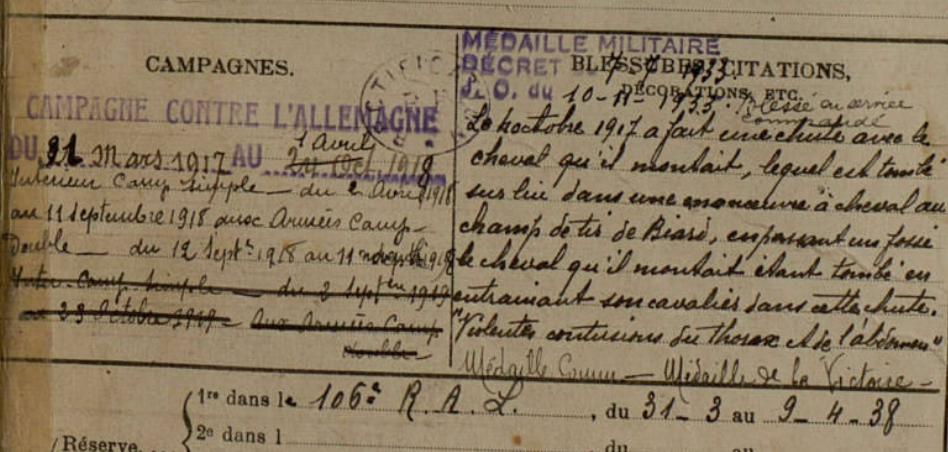 CAMPAGNES.
CAMPAGNE CONTRE L'ALLEMAGNE
1 avril
DU 31 Mars 1917 AU 24 Oct 1918
Intérieur Camp simple — du 2 Avril 1918
au 11 Septembre 1918 aux Armées Camp
Double — du 12 Sept 1918 au 11 1918
Inter. Camp. simple — du 2 Sept 1919
23 Octobre 1919 — Aux Armées Camp
double
MÉDAILLE MILITAIRE
DÉCRET 7-7 1933
BLESSURES, CITATIONS,
DÉCORATIONS, ETC.
J. O. du 10-11-1933
Blessé en service
commandé
Le octobre 1917 a fait une chute avec le
cheval qu'il montait, lequel est tombé
sur lui dans une manœuvre à cheval au
champ de tir de Biard, en passant un fossé
le cheval qu'il montait étant tombé en
entrainant son cavalier dans cette chute.
"Violentes contusions du thorax et de l'abdomen"
Médaille Comm — Médaille de la Victoire —
Réserve.
1re dans le 106e R. A. L. , du 31-3 au 9-4-38
2e dans l , du au